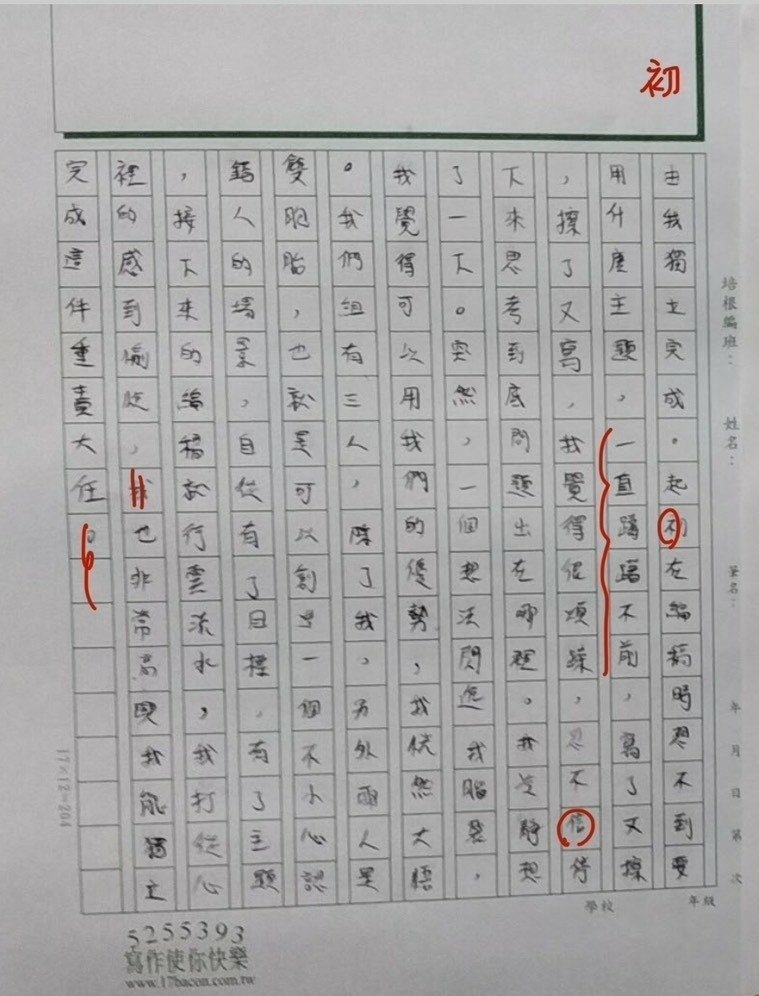 初
培根編班：
姓名：
筆名：
年 月 日 第 次
由我獨立完成。起初在編稿時想不到要
用什麼主題，一直躊躇不前，寫了又擦
，擦了又寫，我覺得很煩躁，忍不信停
下來思考到底問題出在哪裡。我冷靜想
了一下。突然，一個想法閃進我腦袋，
我覺得可以用我們的優勢，我恍然大悟
。我們組有三人，除了我，另外兩人是
雙胞胎，也就是可以創造一個不小心認
錯人的場景，自從有了目標，有了主題
，接下來的編稿就行雲流水，我打從心
裡的感到愉悅，我也非常高興我能獨立
完成這件重責大任。
17×12=204
年級
學校
5255393
寫作使你快樂
www.17bacon.com.tw